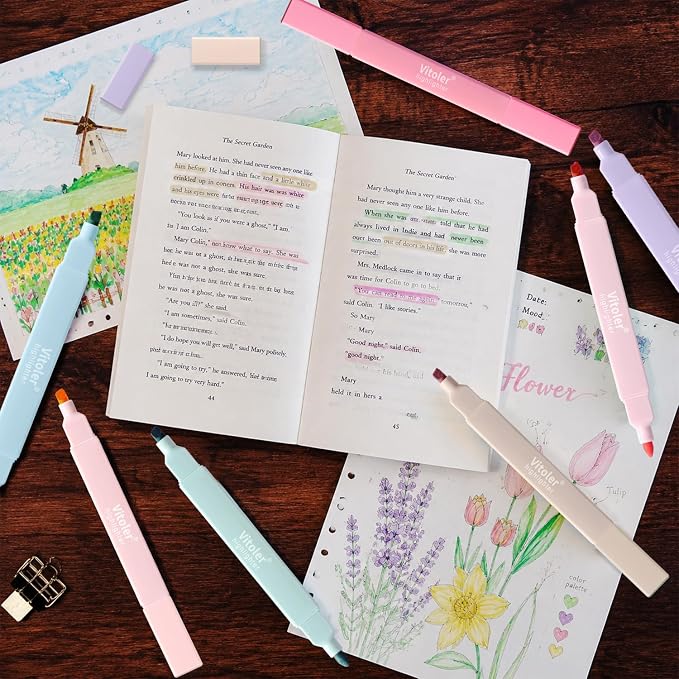 Vitoler®
highlighter
The Secret Garden
Mary looked at him. She had never seen any one like
him before. He had a thin face and a little white
crinkled up in coners. His hair was was white
and his eyes were
"You look as if you were a ghost," "I am.
In I am Colin."
Mary Colin," not how what to say. She was
he was not a ghost, she was sure.
he was not a ghost, she was sure.
"Are you all?" she said.
"I am sometimes," said Colin.
"I do hope you will get well," said Mary politely.
"I am going to try," he answered,
I am going to try very hard."
44
The Secret Garden
Mary thought him a very strange child. She
had never seen any one like him before.
When she was told that he had
always lived in Indie and had never been
ouer been out of doors in his life, she was more
surprised.
Mrs. Medlock came in to say that it
was time for Colin to go to bed.
tomorrow,"
said Colin. "I like stories."
So Mary
Mary
"Good night," said Colin.
"good night."
said
Mary
held it in hers a
45
Date:
Mood
Flower
Tulip
color
palette
Vitoler®
highlighter
Vitoler®
highlighter
Vitoler®
highlighter
Vitoler®
highlighter
Vitoler®
highlighter
Vitoler®
highlighter